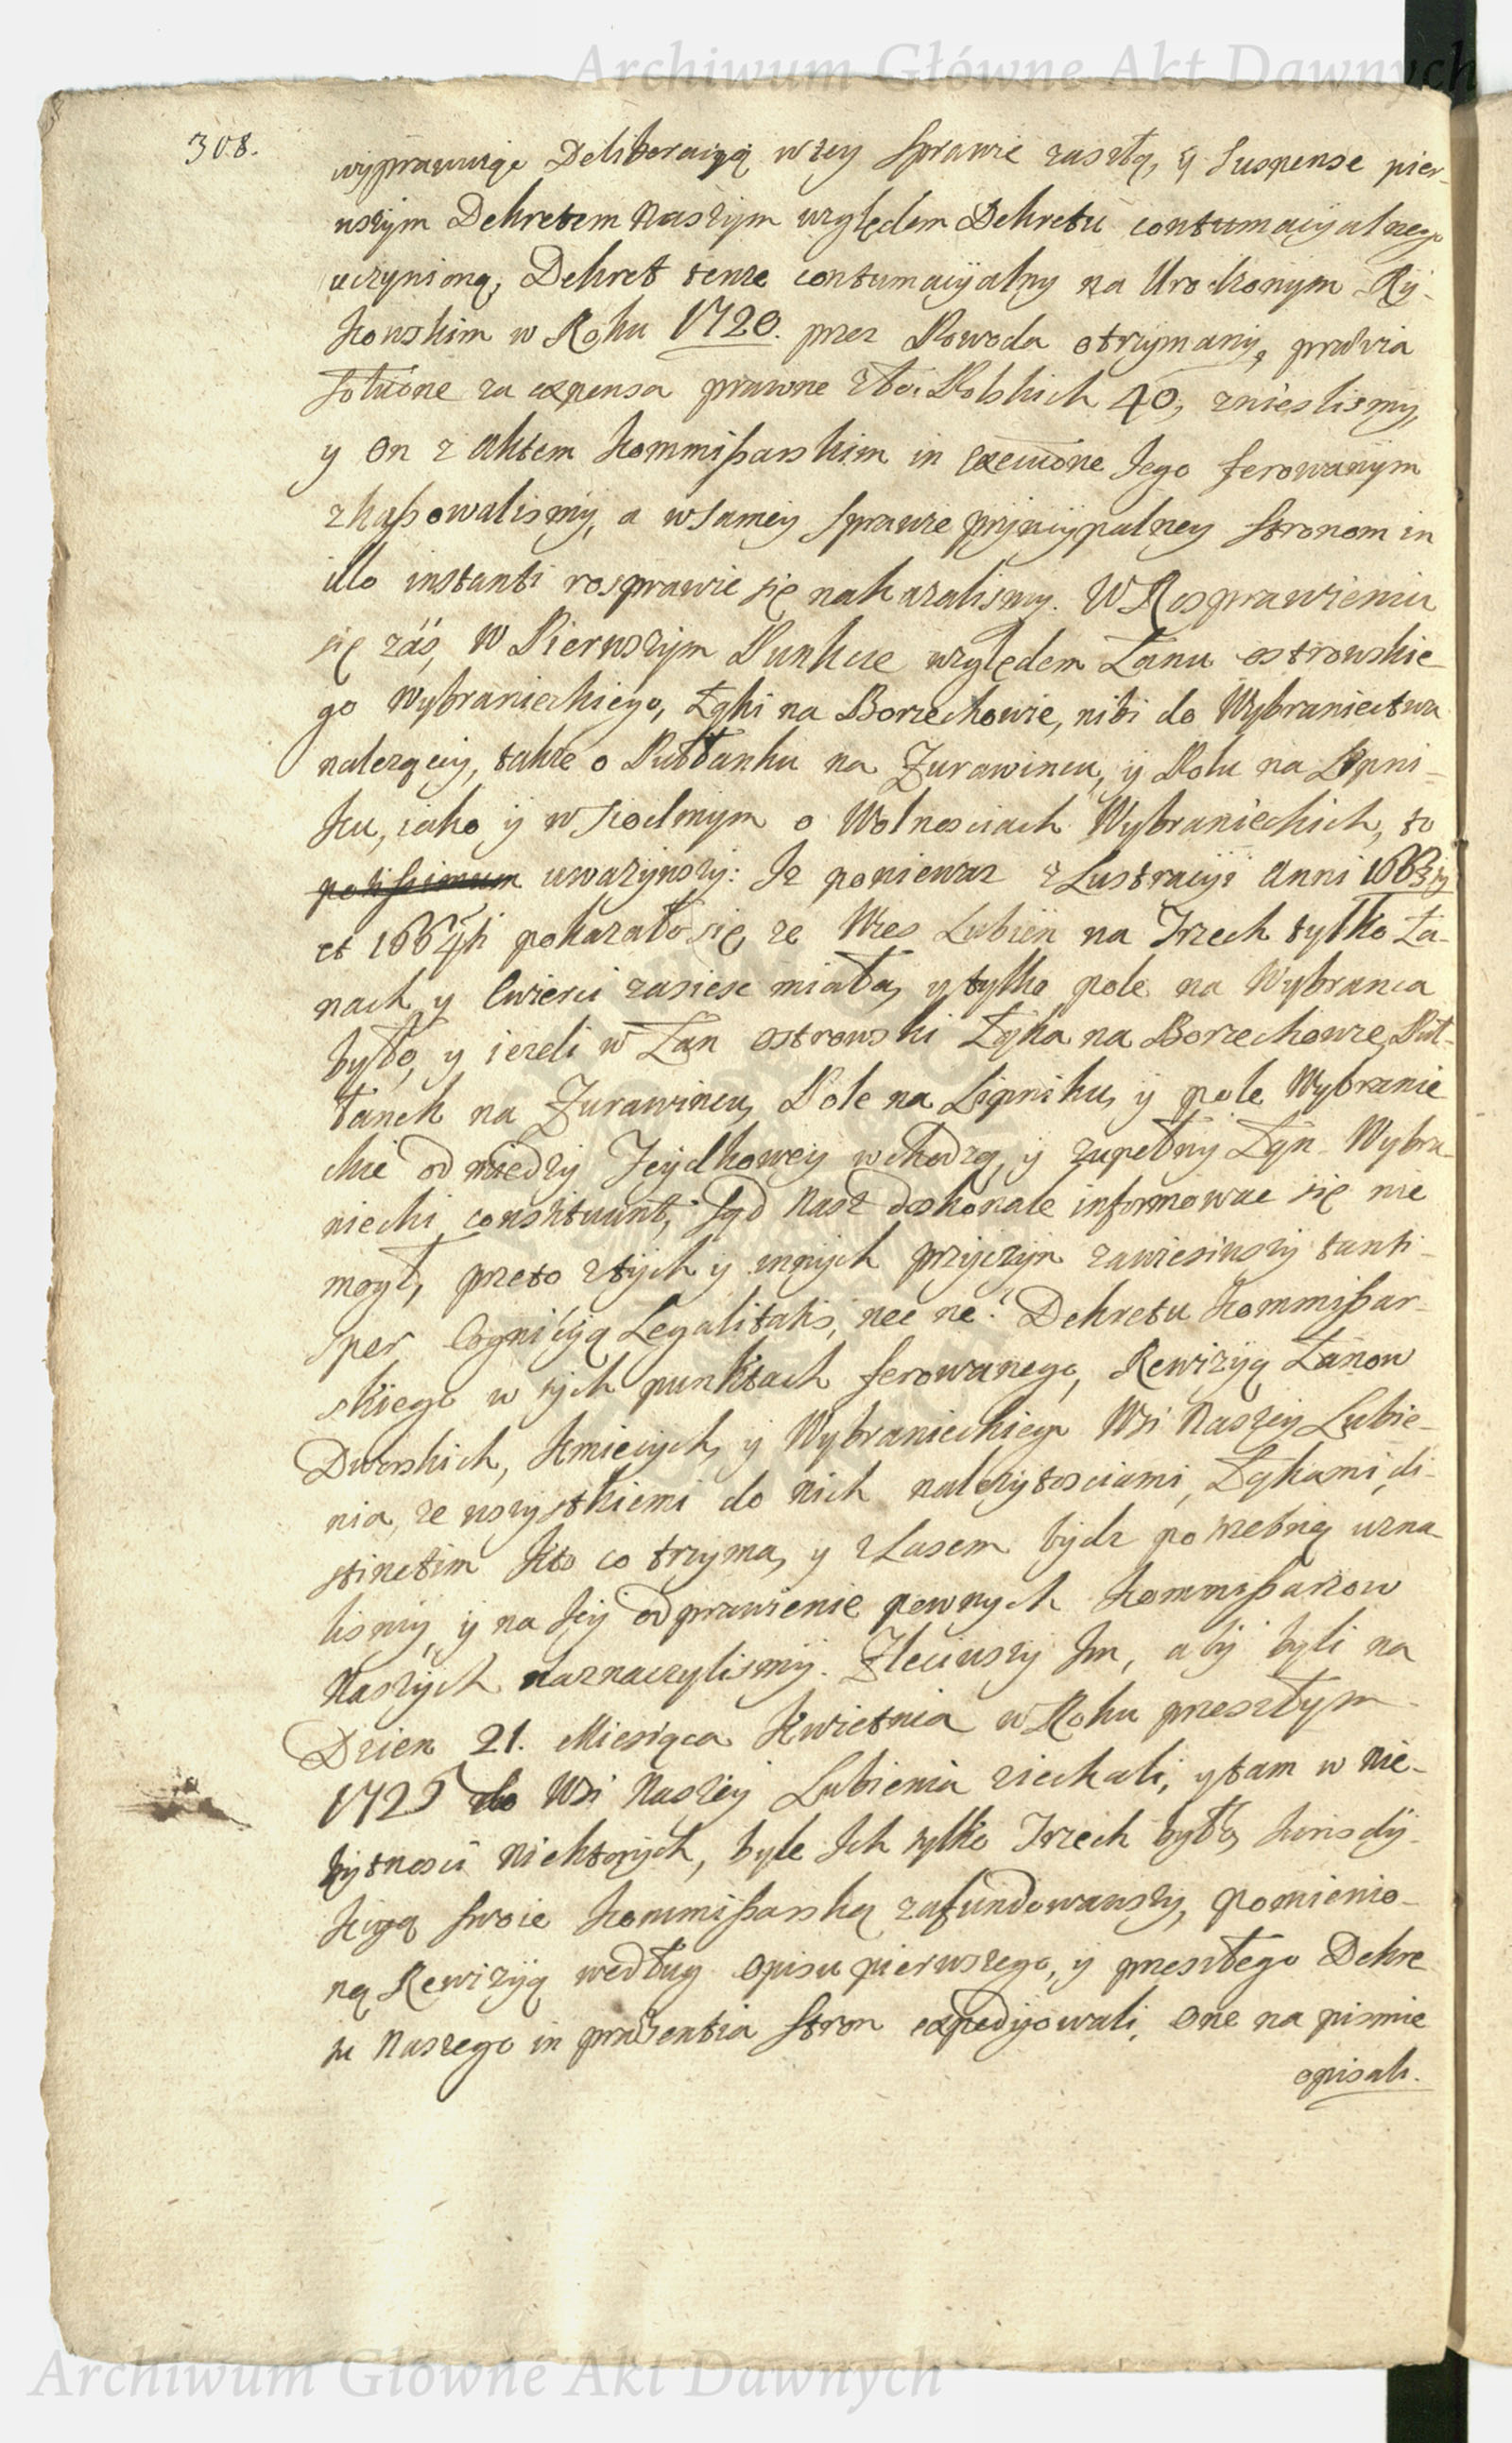 Archiwum Główne Akt Dawnych
308.
wyprawuiąc Deliberacyą w tey sprawie zaszłą, y suspense pier-
wszym Dekretem Naszym względem Dekretu contumacyalnego
uczynioną, Dekret tenze contumacyalny na Urodzonym Ry-
kowskim w Roku 1720. przez Powoda otrzymany, prævia
solutione za expensa prawne Złot. Polskich 40, znieslismy,
y on z Aktem Kommissarskim in executione Jego ferowanym
zkassowalismy, a w samey sprawie pryncypalney stronom in
illo instanti rosprawic się nakazalismy. W Rosprawieniu
się zás, w Pierwszym Punkcie względem Łanu ostrowskie-
go Wybranieckiego, Łąki na Borzechowie, nibi do Wybraniectwa
nalezącey, takze o Pułłanku na Zurawincu, y Polu na Lipni-
ku, iako y w siodmym o Wolnosciach Wybranieckich, to
potissimum uwazywszy: Iz poniewaz z Lustracyi Anni 1663ÿ
et 1664ti pokazało się, ze Wies Lubien na Trzech tylko Ła-
nach y Cwierci zasiesc miała, y tylko pole na Wybranca
było, y iezeli w Łan Ostrowski Łąka na Borzechowie, Puł-
łanek na Zurawincu, Pole na Lipniku, y pole Wybranie
ckie od miedzy Jcydkowey wchodzą, y zupełny Łąn Wybra-
niecki constituunt, Sąd Nasz doskonale informowac się nie
mogł, przeto z tych y innych przyczyn zawiesiwszy tanti-
sper Cognicyą Legalitatis, nec ne? Dekretu Kommissar-
skiego w tych punktach ferowanego, Rewizyą Łanow
Dworskich, Kmiecych, y Wybranieckiego Wsi Naszey Lubie-
nia, ze wszystkiemi do nich nalezytosciami, Łąkami, di-
stinctim kto co trzyma, y z Lasem bydz potrzebną uzna-
lismy, y na Jey odprawienie pewnych Kommissarzow
Naszych naznaczylismy. Zleciwszy Im, aby byli na
Dzien 21. Miesiąca Kwietnia w Roku przeszłym
1725 do Wsi Naszey Lubienia ziechali, y tam w nie-
bytnosci niektorych, byle Ich tylko Trzech było, Jurisdy-
kcyą swoie Kommissarską zafundowawszy, pomienio-
ną Rewizyą według opisu pierwszego, y przeszłego Dekre
tu Naszego in præsentia stron expedyowali, one na pismie
opisali.
Archiwum Główne Akt Dawnych